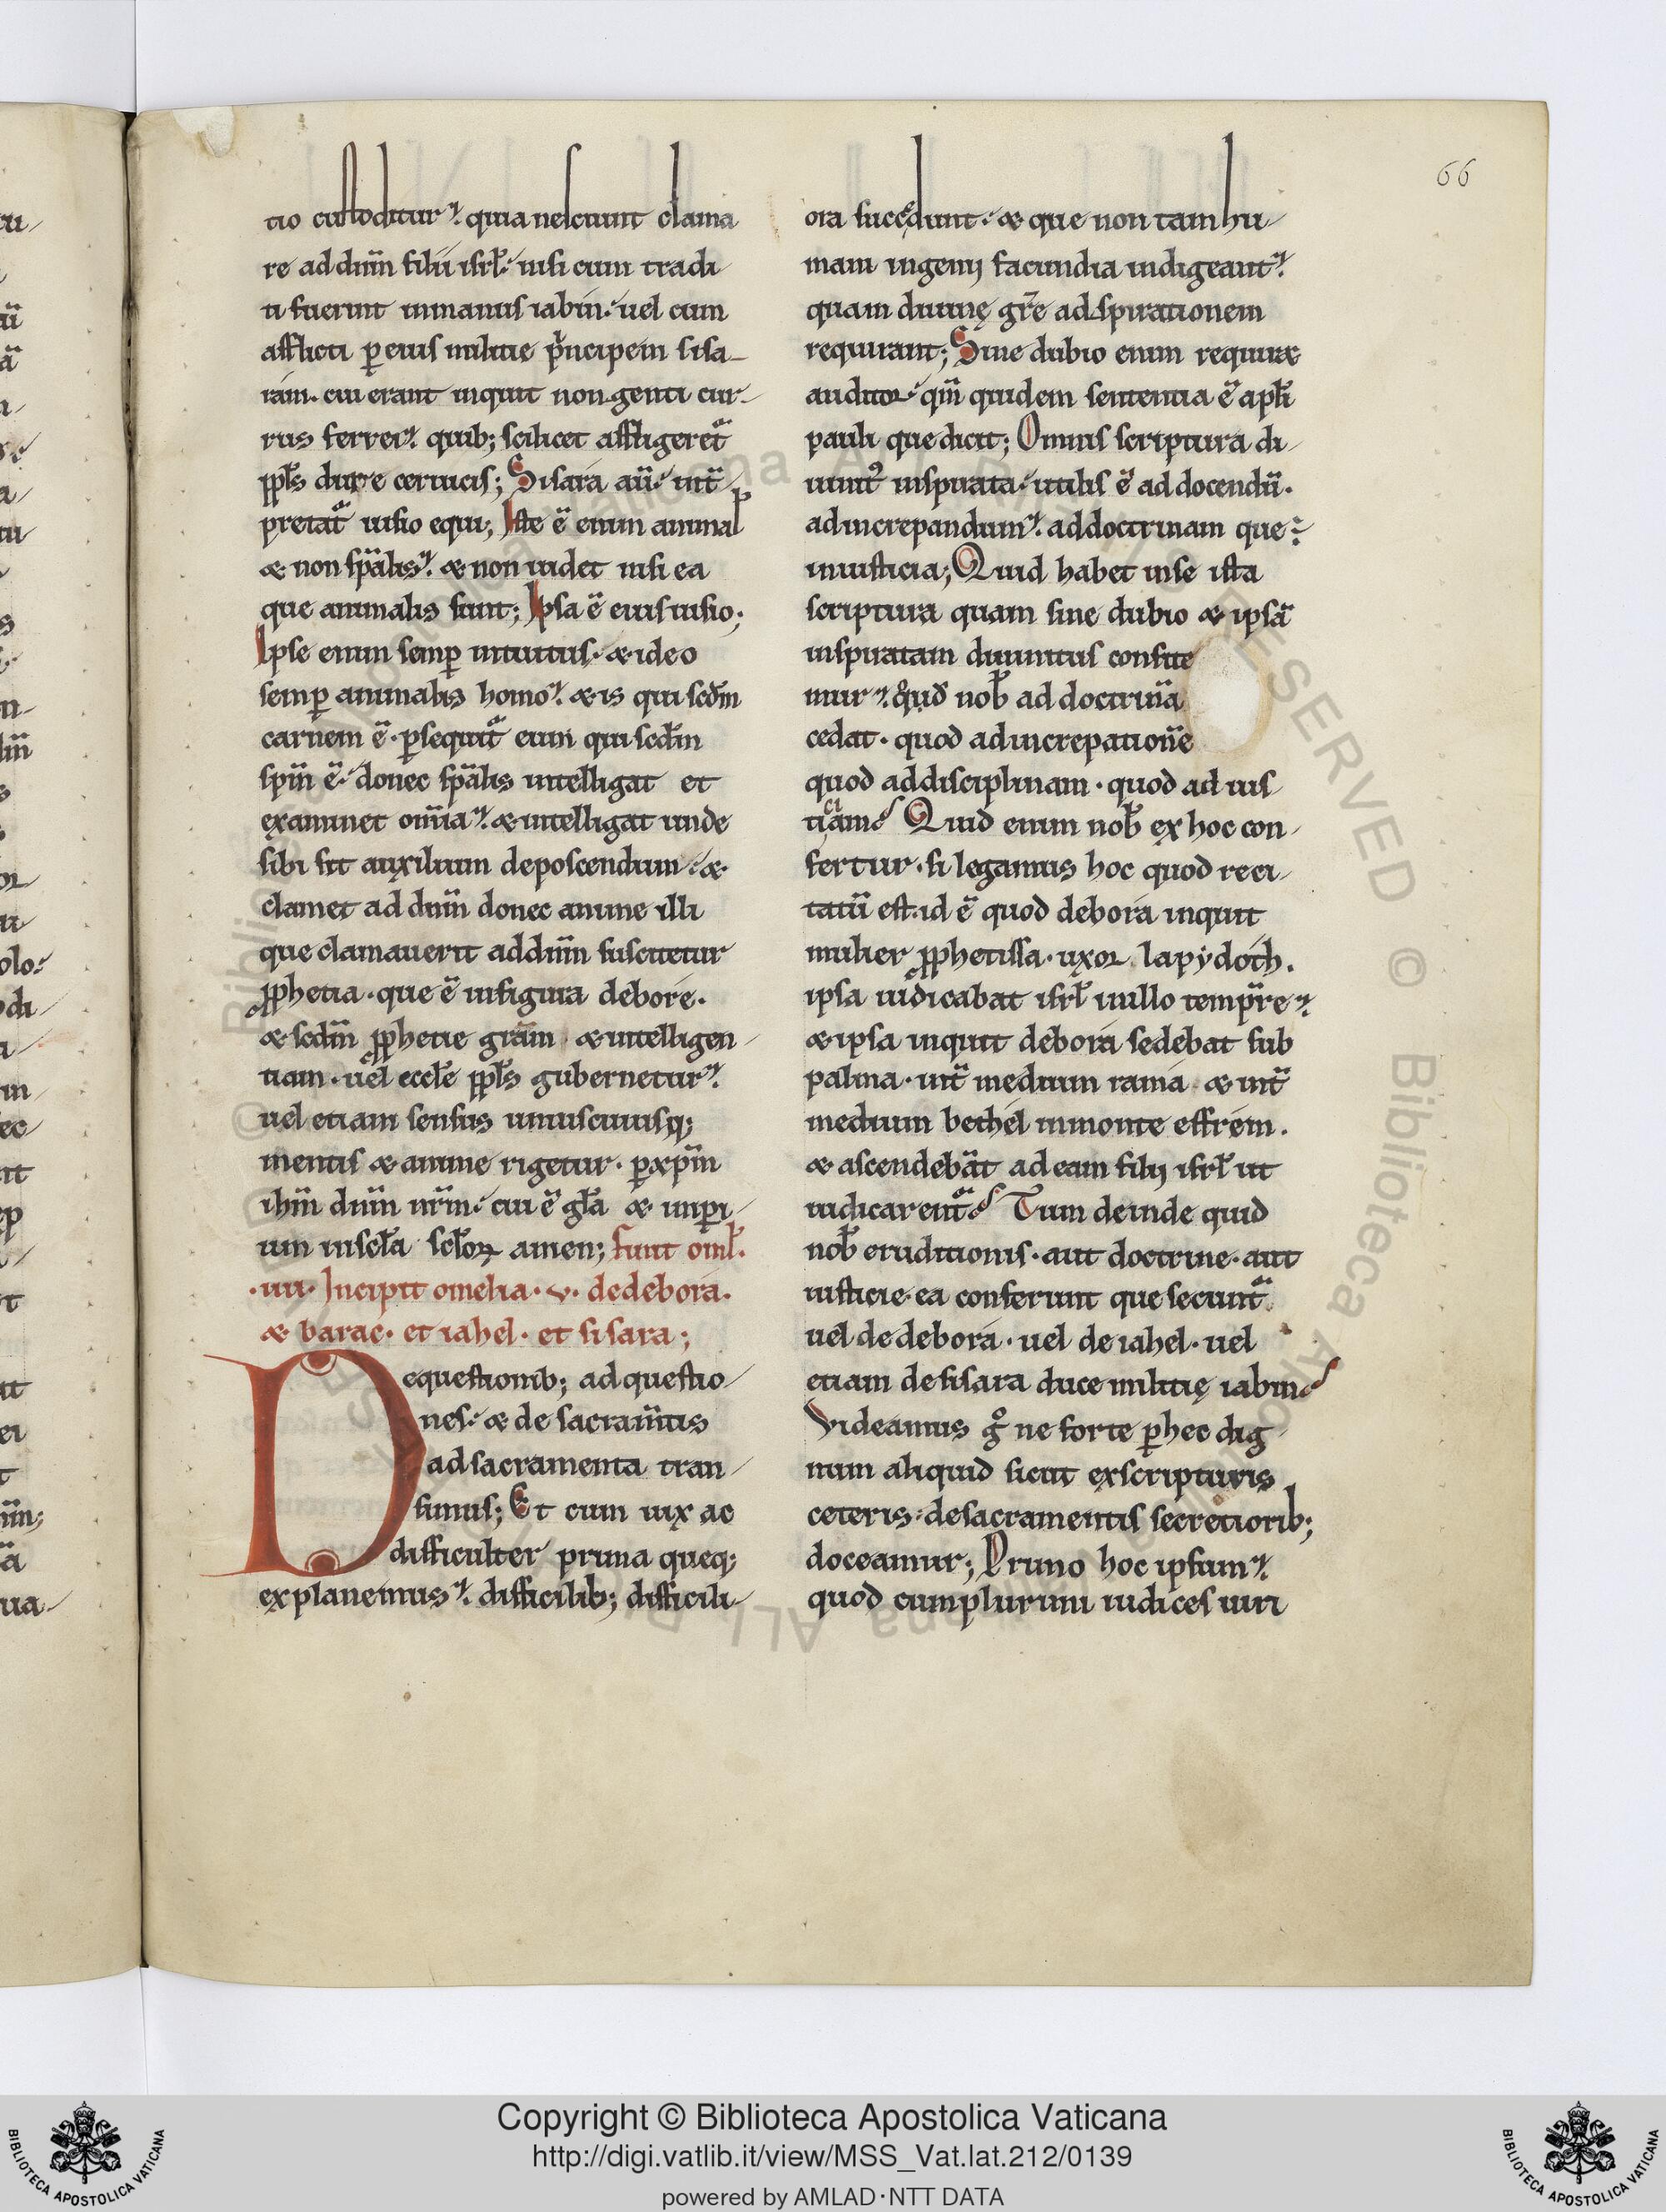 66
tio custoditur. quia nesciunt clama
re ad dn̄m filii isrl̄. nisi cum tradi
ti fuerint inmanus iabin. uel cum
afflicti ꝑ eius militie pͥncipem sisa
ram. cui erant inquit non genti cur
rus ferrei. quib; scilicet affligeret᷑
ppl̄s dure ceruicis; Sisara aū. int̄
pretat᷑ uisio equi; Iste ē enim animal
& non sp̄alis. & non uidet nisi ea
que animalis sunt; Ipsa ē eius uisio;
Ipse enim semꝑ intuitus. & ideo
semꝑ animalis homo. & is qui scd̄m
carnem ē. ꝑsequit᷑ eum qui scd̄m
sp̄m ē. donec sp̄alis intelligat et
examinet om̄ia. & intelligat unde
sibi sit auxilium deposcendum. &
clamet ad dn̄m donec anime illi
que clamauerit addn̄m suscitetur
ꝓphetia. que ē infigura debore.
& scd̄m ꝓphetie grām & intelligen
tiam. uel eccl̄e ppl̄s gubernetur.
uel etiam sensus uniuscuiusq;
mentis & anime rigetur. ꝑ xp̄m
ihm̄ dn̄m nr̄m. cui ē gl̄a & imꝑi
um inscl̄a scl̄oꝝ amen; finit oml̄.
.iiii. Incipit omelia. v. dedebora.
& barac. et iahel. et sisara;
Dequestionib; ad questio
nes. & de sacram̄tis
ad sacramenta tran
simus; Et cum uix ac
difficulter prima queq;
explanemus. difficilib; difficili
ora succedunt. & que non tam hu
mani ingenij facundia indigeant.
quam diuinę gr̄e ad spirationem
requirant; Sine dubio enim require
auditor. qm̄ quidem sententia ē apl̄i
pauli que dicit; Omnis scriptura di
uinitꝰ inspirata. utilis ē ad docendū.
ad increpandum. ad doctrinam que
iniusticia; Quid habet inse ista
scriptura quam sine dubio & ipsā
inspiratam diuinitus confite
mur. quid nob̄ ad doctrinā
cedat. quod ad increpationē
quod ad disciplinam. quod ad ius
ticiam. Quid enim nob̄ ex hoc con
fertur. si legamus hoc quod reci
tatū est. id ē quod debora inquit
mulier ꝓphetissa. uxor lapydoth.
ipsa iudicabat isrl̄ inillo temp̄re.
& ipsa inquit debora sedebat sub
palma. int̄ medium rama & int̄
medium bethel inmonte effrem.
& ascendebāt ad eam filij isrl̄ ut
iudicarent᷑. Tum deinde quid
nob̄ eruditionis. aut doctrine. aut
iusticie. ea conferunt que secunt᷑
uel de debora. uel de iahel. uel
etiam de sisara duce militię iabin
Videamus gͦ ne forte ꝑ hec dig
num aliquid sicut exscripturis
ceteris. desacramentis secretiorib;
doceamur; Primo hoc ipsum.
quod cumplurimi iudices uiri
Copyright © Biblioteca Apostolica Vaticana
http://digi.vatlib.it/view/MSS_Vat.lat.212/0139
powered by AMLAD·NTT DATA
BIBLIOTECA APOSTOLICA VATICANA
BIBLIOTECA APOSTOLICA VATICANA